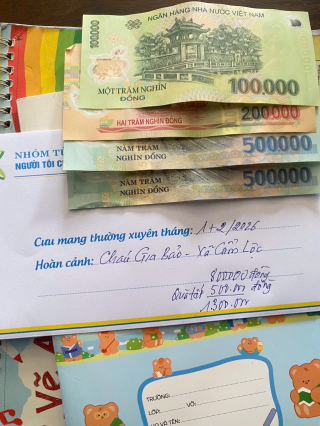 NGÂN HÀNG NHÀ NƯỚC VIỆT NAM
100000
MỘT TRĂM NGHÌN
ĐỒNG
100.000
HAI TRĂM NGHÌN ĐỒNG
200.000
NĂM TRĂM
NGHÌN ĐỒNG
500000
NĂM TRĂM
NGHÌN ĐỒNG
500000
NHÓM
NGƯỜI TÔI
Cưu mang thường xuyên tháng: 1+2/2026
Hoàn cảnh: Cháu Gia Bảo - Xã Cẩm Lộc
800.000 đồng
Quà tết 500.000 đồng
1.300.000
TRƯỜNG:
LỚP: VỞ:
HỌ VÀ TÊN:
Vẽ